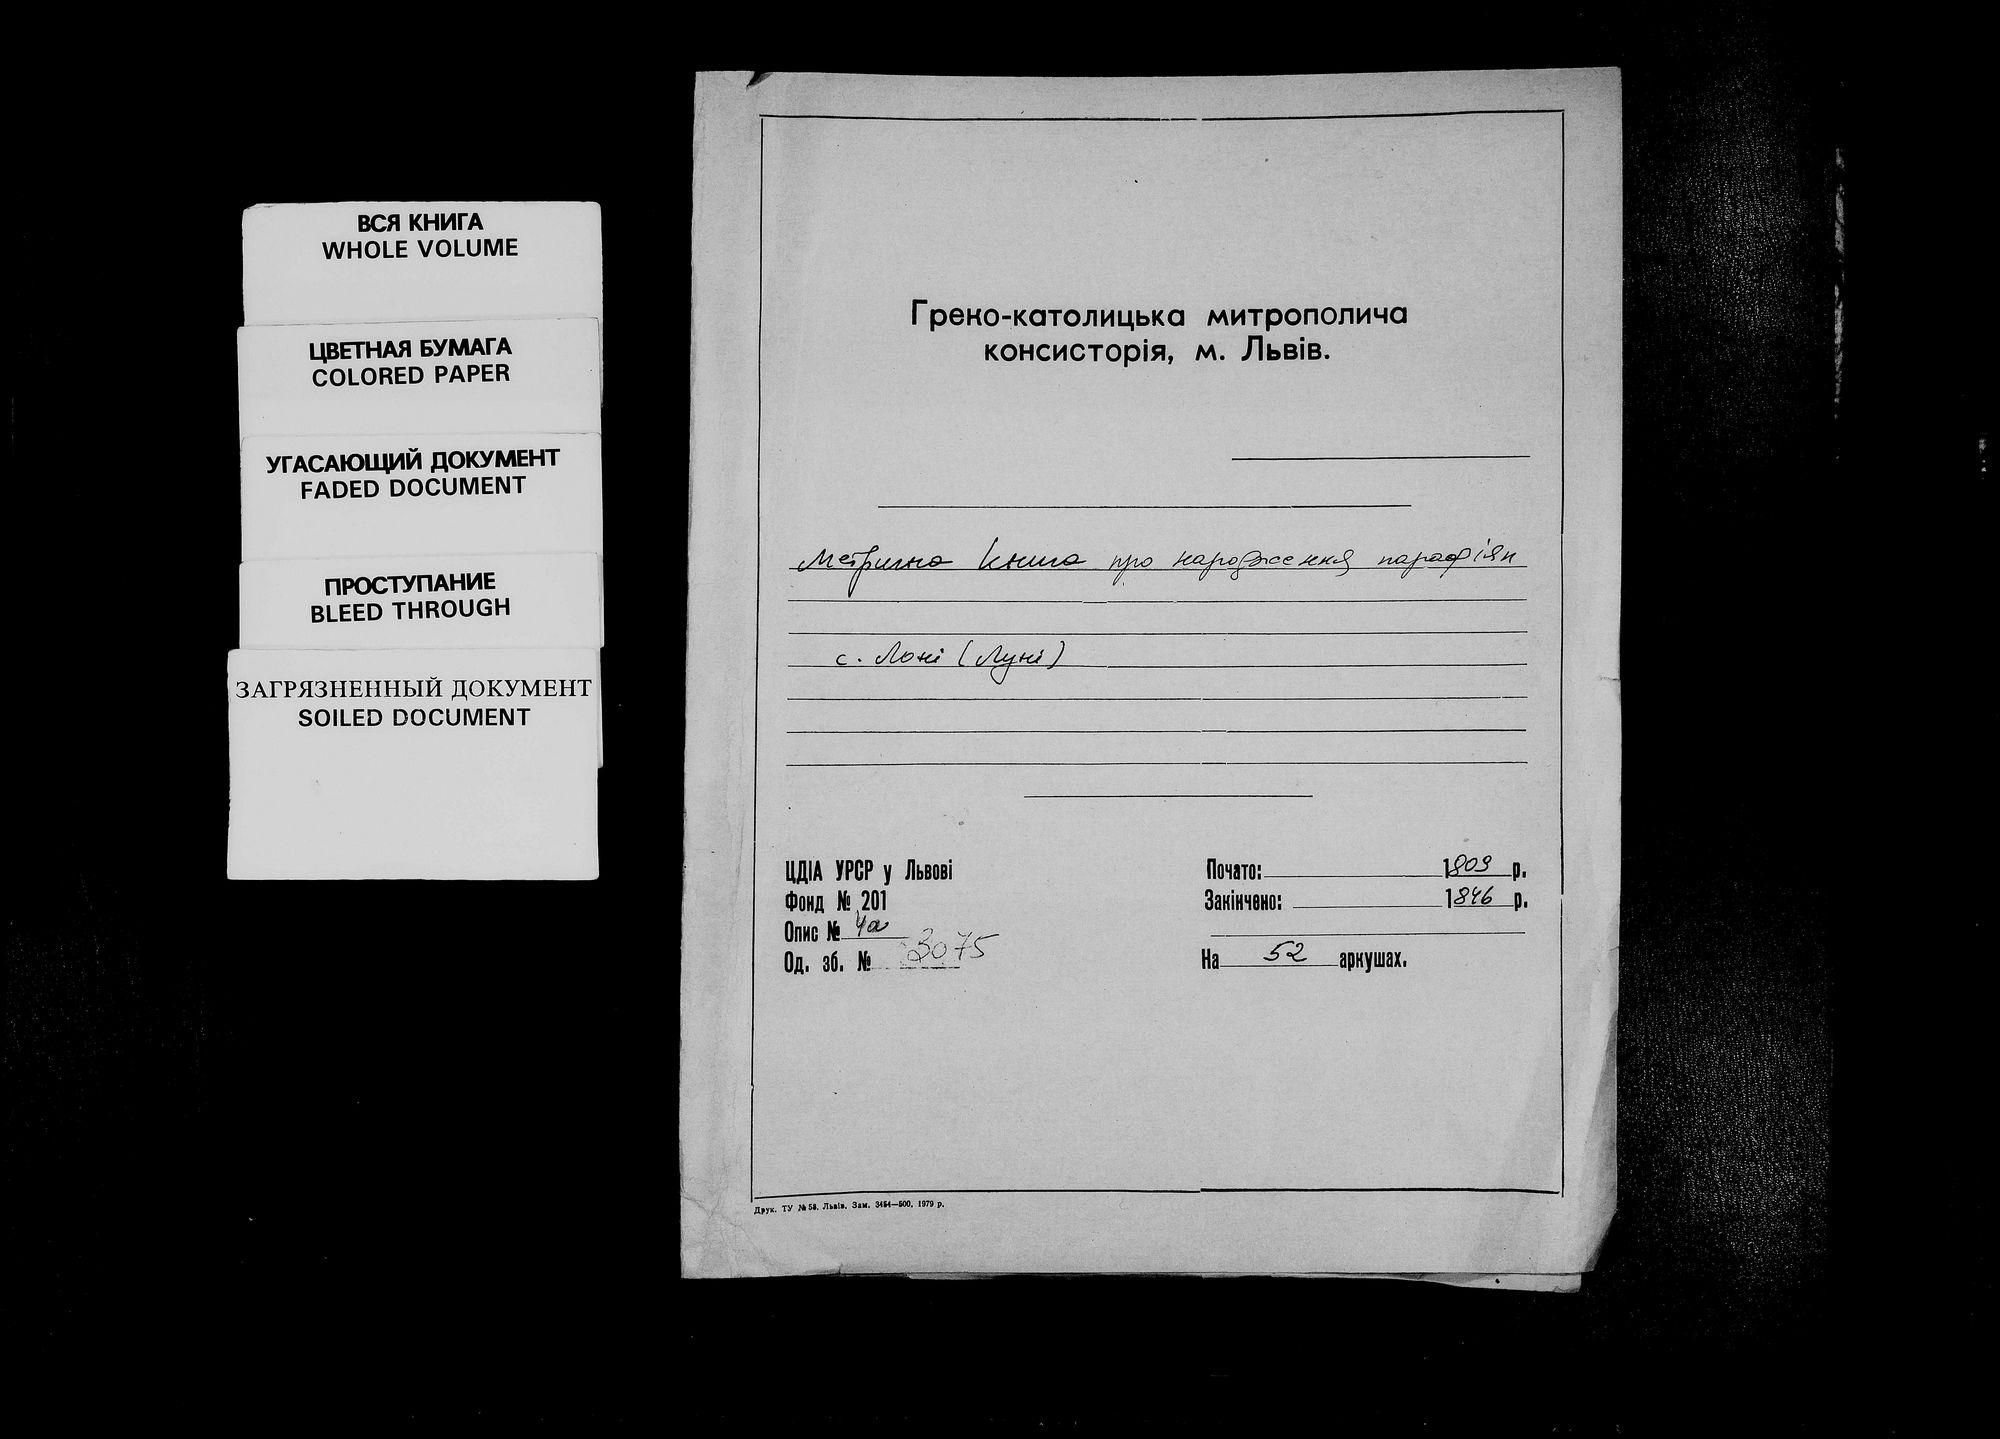 ВСЯ КНИГА
WHOLE VOLUME
ЦВЕТНАЯ БУМАГА
COLORED PAPER
УГАСАЮЩИЙ ДОКУМЕНТ
FADED DOCUMENT
ПРОСТУПАНИЕ
BLEED THROUGH
ЗАГРЯЗНЕННЫЙ ДОКУМЕНТ
SOILED DOCUMENT
Греко-католицька митрополича
консисторія, м. Львів.
Метрична книга про народження парафіян
с. Лоні (Луні)
ЦДІА УРСР у Львові
Фонд № 201
Опис № 4а
Од. зб. № 3075
Почато: 1803 р.
Закінчено: 1846 р.
На 52 аркушах.
Друк. ТУ № 58. Львів. Зам. 3454—500, 1979 р.